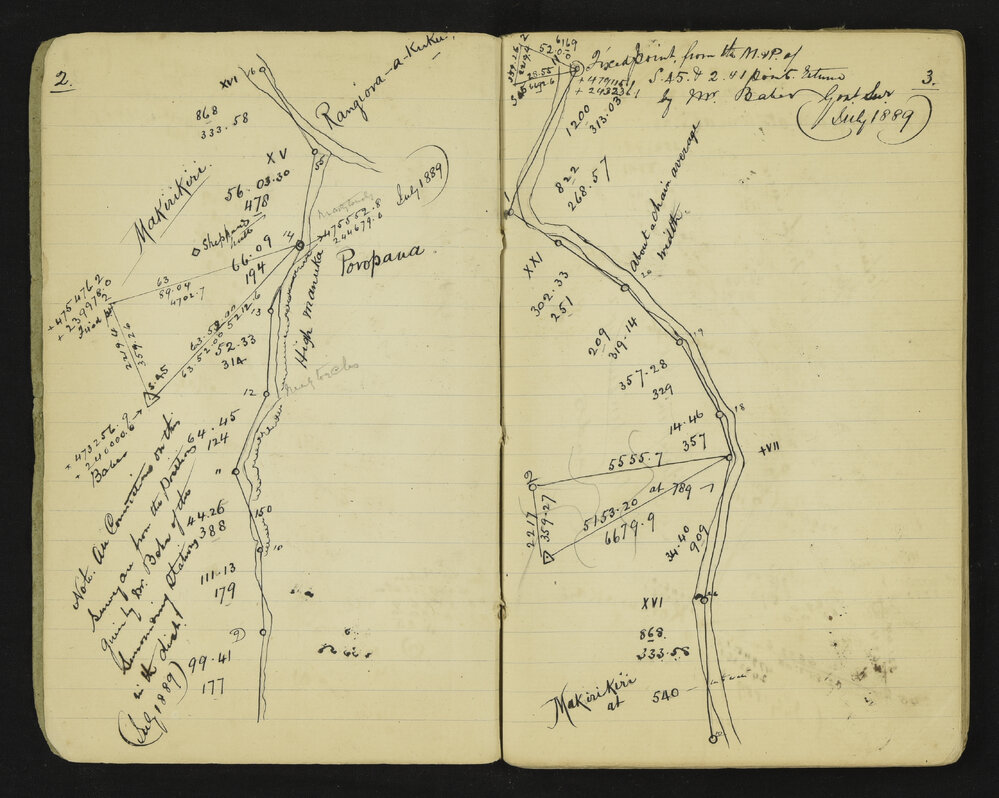 2.
XVI
16
868
333.58
Rangiora-a-Kuku.
XV
55
56.03.30
478
Makirikiri.
Sheppard
66.09
194
14
+475552.8
244679.6
July 1889)
Poropana.
63
59.04
4702.7
+475476.2
+239978.0
2294
359.26
S.45
5212.6
63.52.00
52.33
314
13
High manuka
12
+473256.9
+240000.6
Baker
64.45
124
11
44.26
388
150
10
111.13
179
9
99.41
177
Note. All Connections on this
Survey are from the Positions
given by Mr. Baker of the
Surrounding Stations
in the dist.
(July 1889)
3.
Fixed Point from the M & P of
S.45 & 2.41 points Return
by Mr. Baker Govt Sur
(July 1889)
1200
313.03
822
268.57
About a chain average
width.
XXI
302.33
251
20
209
319.14
19
357.28
329
18
14.46
357
+VII
5555.7
at 789
5153.20
6679.9
2217
359.27
34.40
909
XVI
868
333.58
Makirikiri
at 540